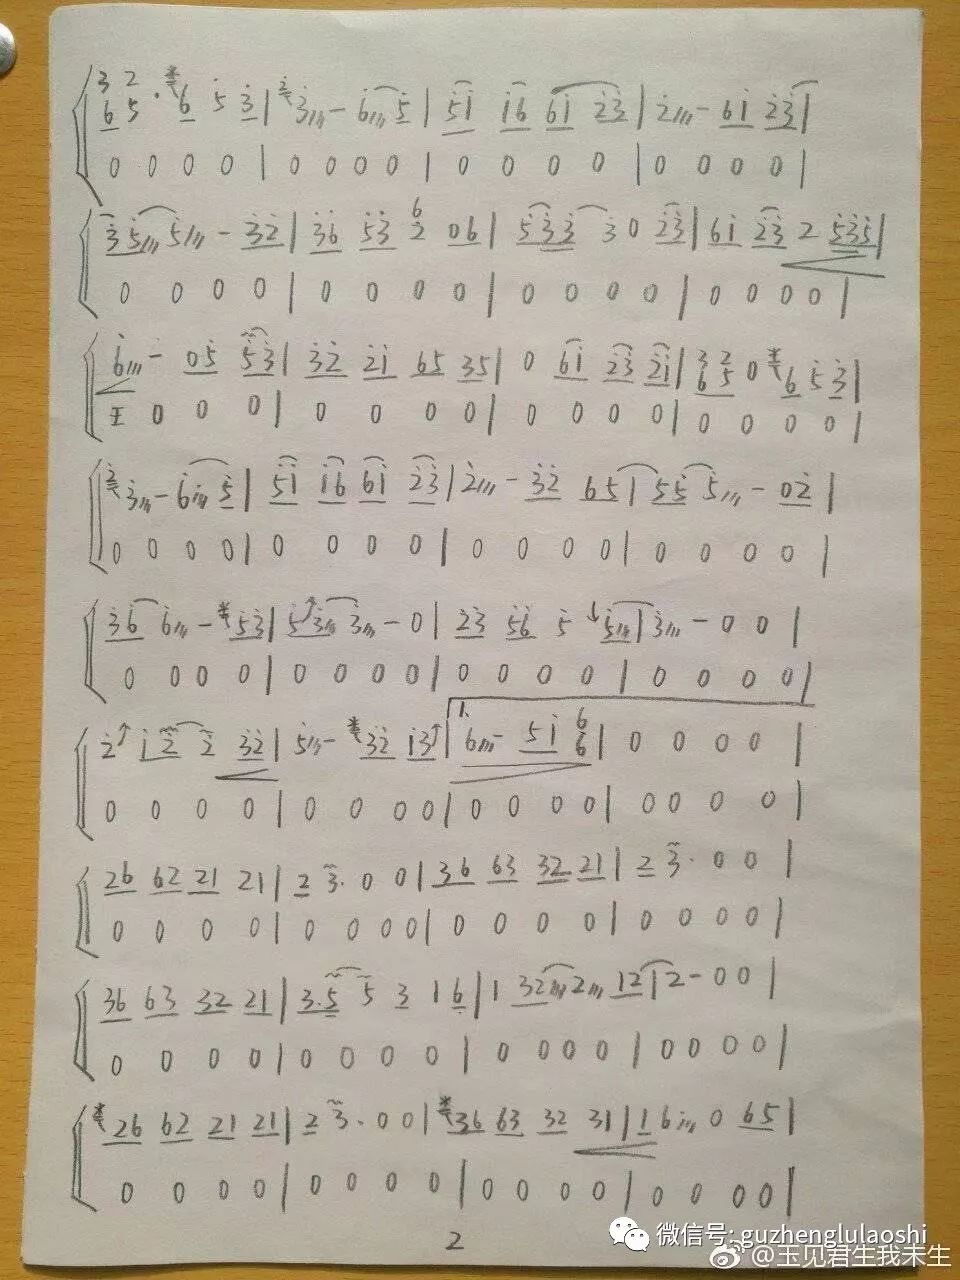 3 2
6 5 · 6 5 3 | 2 3 - 6 5 | 5 1 1 6 6 1 2 3 | 2 - 6 1 2 3 |
0 0 0 0 | 0 0 0 0 | 0 0 0 0 | 0 0 0 0 |
3 5 5 - 3 2 | 3 6 5 3 6 2 0 6 | 5 3 3 3 0 2 3 | 6 1 2 3 2 5 3 5 |
0 0 0 0 | 0 0 0 0 | 0 0 0 0 | 0 0 0 0 |
6 - 0 5 5 3 | 3 2 2 1 6 5 3 5 | 0 6 1 2 3 2 1 | 3 6 2 5 0 6 5 3 |
0 0 0 | 0 0 0 0 | 0 0 0 0 | 0 0 0 0 |
2 3 - 6 5 | 5 1 1 6 6 1 2 3 | 2 - 3 2 6 5 | 5 5 5 - 0 2 |
0 0 0 0 | 0 0 0 0 | 0 0 0 0 | 0 0 0 0 |
3 6 6 - 5 3 | 5 3 3 - 0 | 2 3 5 6 5 5 | 3 - 0 0 |
0 0 0 0 | 0 0 0 0 | 0 0 0 0 | 0 0 0 0 |
2 1 2 2 3 2 | 5 - 3 2 1 3 | 1. 6 - 5 1 6 6 | 0 0 0 0 |
0 0 0 0 | 0 0 0 0 | 0 0 0 0 | 0 0 0 0 |
2 6 6 2 2 1 2 1 | 2 3 · 0 0 | 3 6 6 3 3 2 2 1 | 2 3 · 0 0 |
0 0 0 0 | 0 0 0 0 | 0 0 0 0 | 0 0 0 0 |
3 6 6 3 3 2 2 1 | 3 · 5 5 3 1 6 | 1 3 2 2 1 2 | 2 - 0 0 |
0 0 0 0 | 0 0 0 0 | 0 0 0 0 | 0 0 0 0 |
2 6 6 2 2 1 2 1 | 2 3 · 0 0 | 3 6 6 3 3 2 3 1 | 1 6 0 6 5 |
0 0 0 0 | 0 0 0 0 | 0 0 0 0 | 0 0 0 0 |
2
微信号: guzhenglulaoshi
@玉见君生我未生